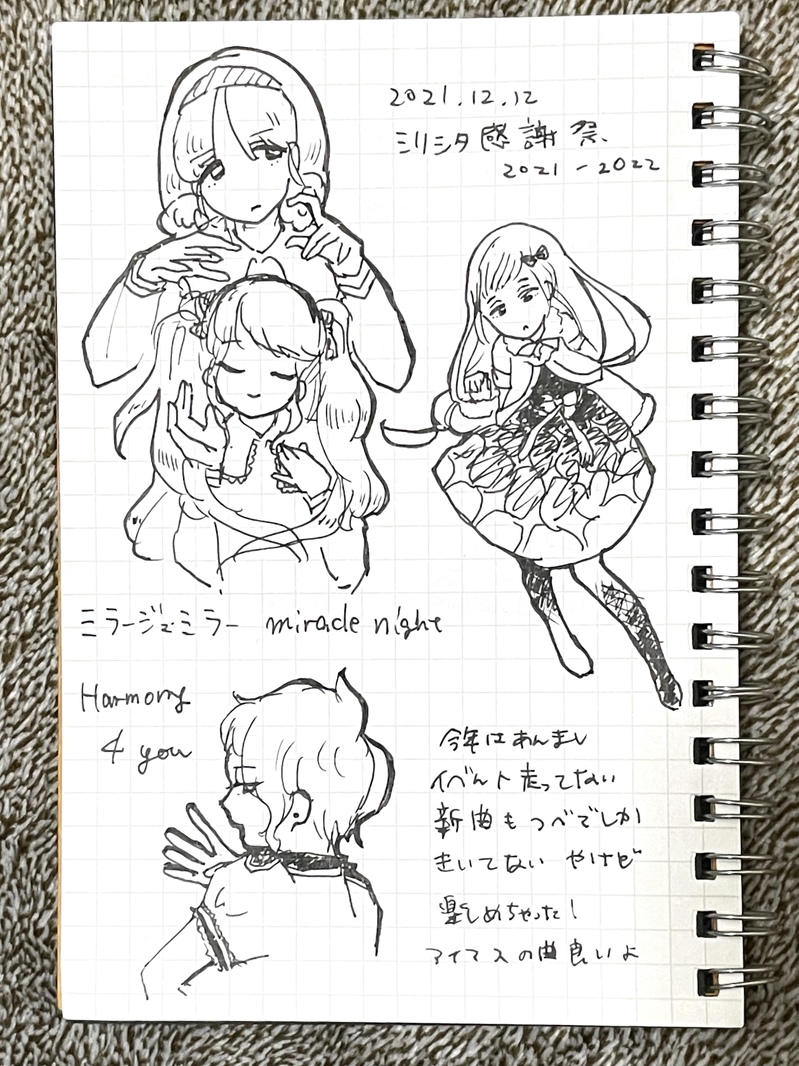 2021.12.12
ミリシタ感謝祭
2021-2022
ミラージュ・ミラー miracle night
Harmony
4 you
今年はあんまし
イベント走ってない
新曲もつべでしか
きいてない やけど
楽しめちゃった!
アイマスの曲良いよ